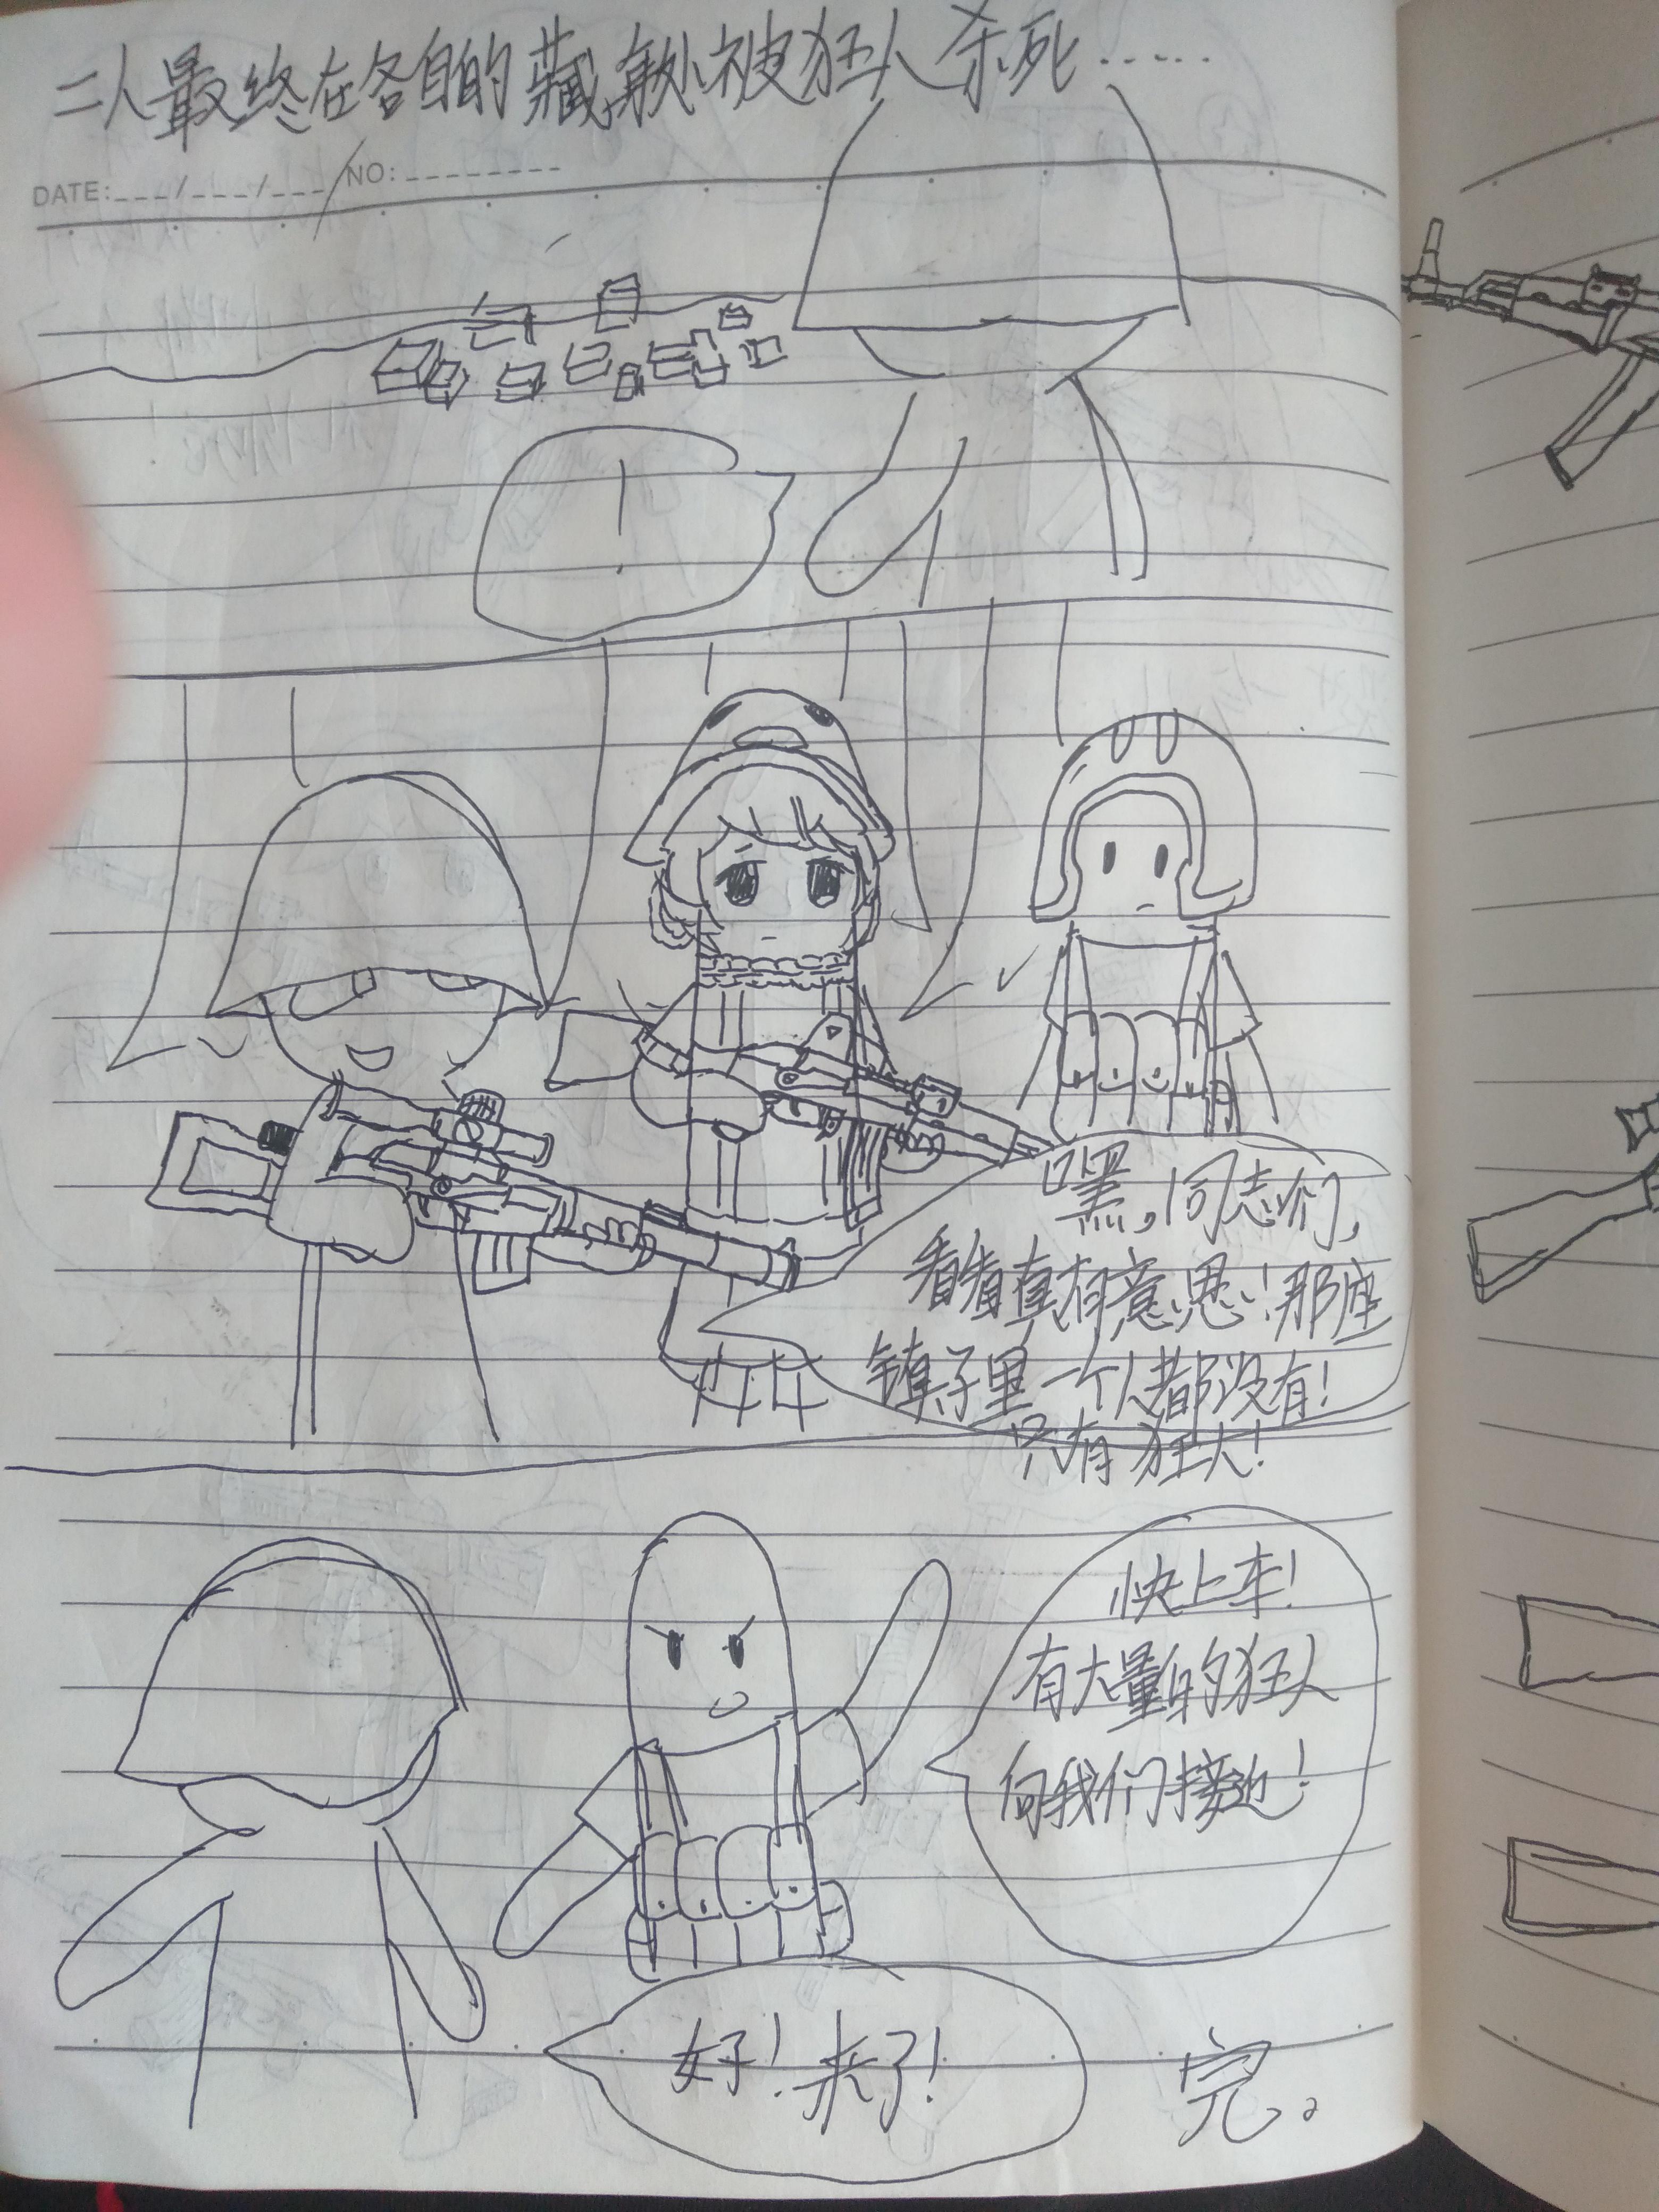 二人最终在各自的藏身处被狂人杀死……
DATE:___/___/___ NO:--------
!
嘿,同志们,
看看真有意思!那座
镇子里一个人都没有!
只有狂人!
快上车!
有大量的狂人
向我们接近!
好!来了!
完。